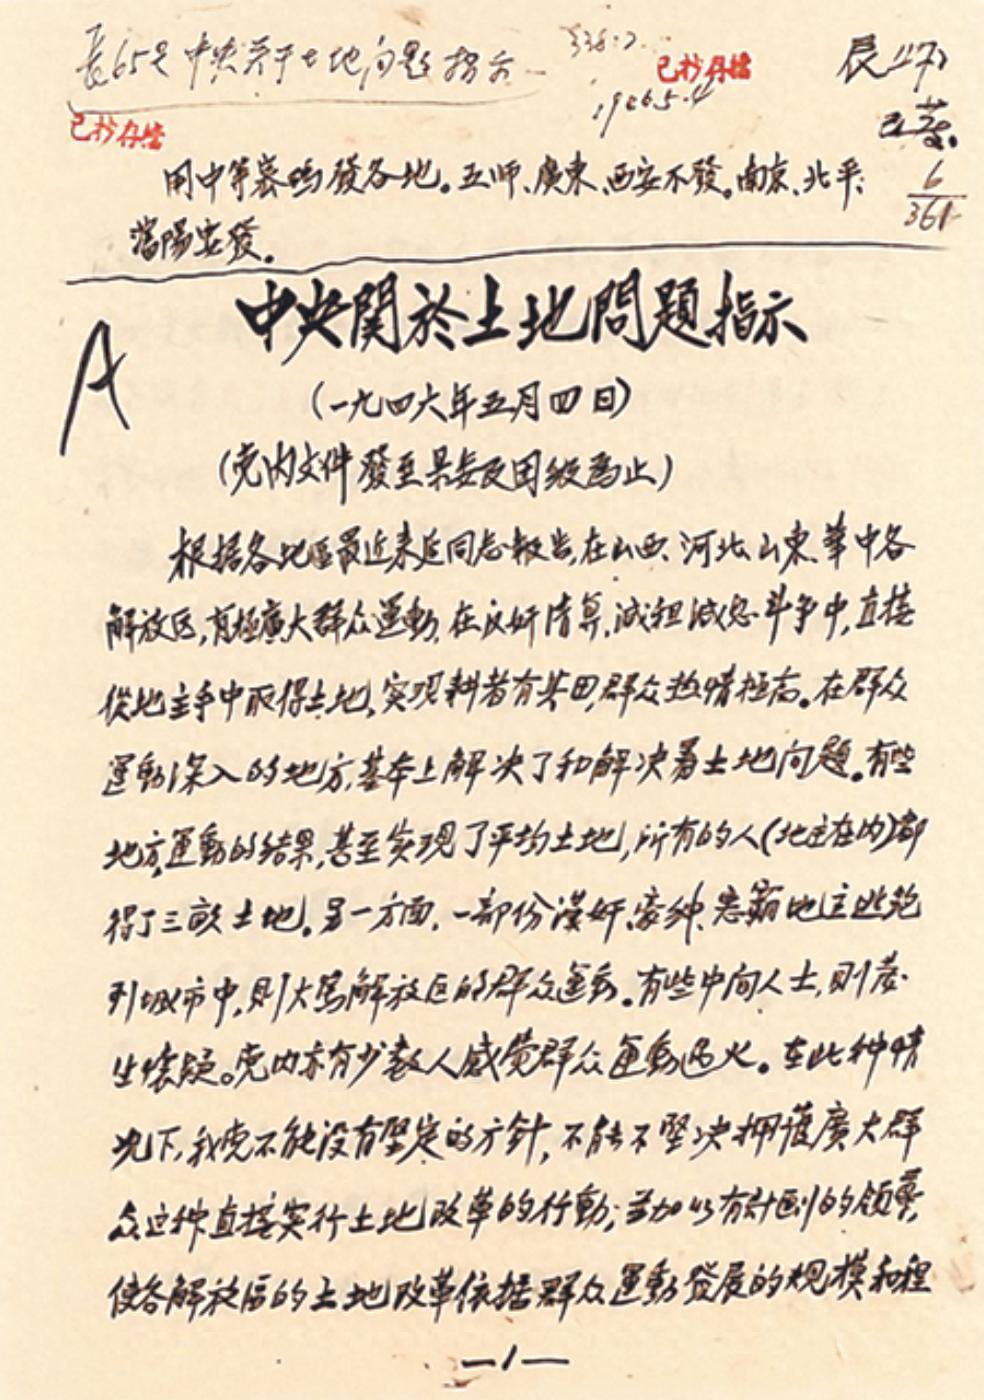 長65号 中央关于土地问题指示
338:2
已抄存檔
1946.5.4
已抄存檔
已发
6
361
用中等密碼發各地。五师、廣東、西安不發。南京、北平、
瀋陽密發。
中央関於土地問題指示
A
(一九四六年五月四日)
(党内文件 發至县委及团级為止)
根据各地區最近来延同志報告,在山西、河北、山東、華中各
解放区,有極廣大群众運動,在反奸清算、減租減息斗争中,直接
從地主手中取得土地,实现耕者有其田,群众热情極高。在群众
運動深入的地方,基本上解决了和解决着土地问题。有些
地方,運動的结果,甚至实现了平均土地,所有的人(地主在内)都
得了三畝土地。另一方面,一部份漢奸、豪绅、悪霸地主逃跑
到城市中,则大罵解放区的群众運動。有些中间人士,则發
生懷疑。党内亦有少数人感觉群众運動过火。在此种情
况下,我党不能没有坚定的方針,不能不坚决拥護廣大群
众这种直接实行土地改革的行動,並加以有計劃的領導,
使各解放区的土地改革依据群众運動發展的规模和程
—1—